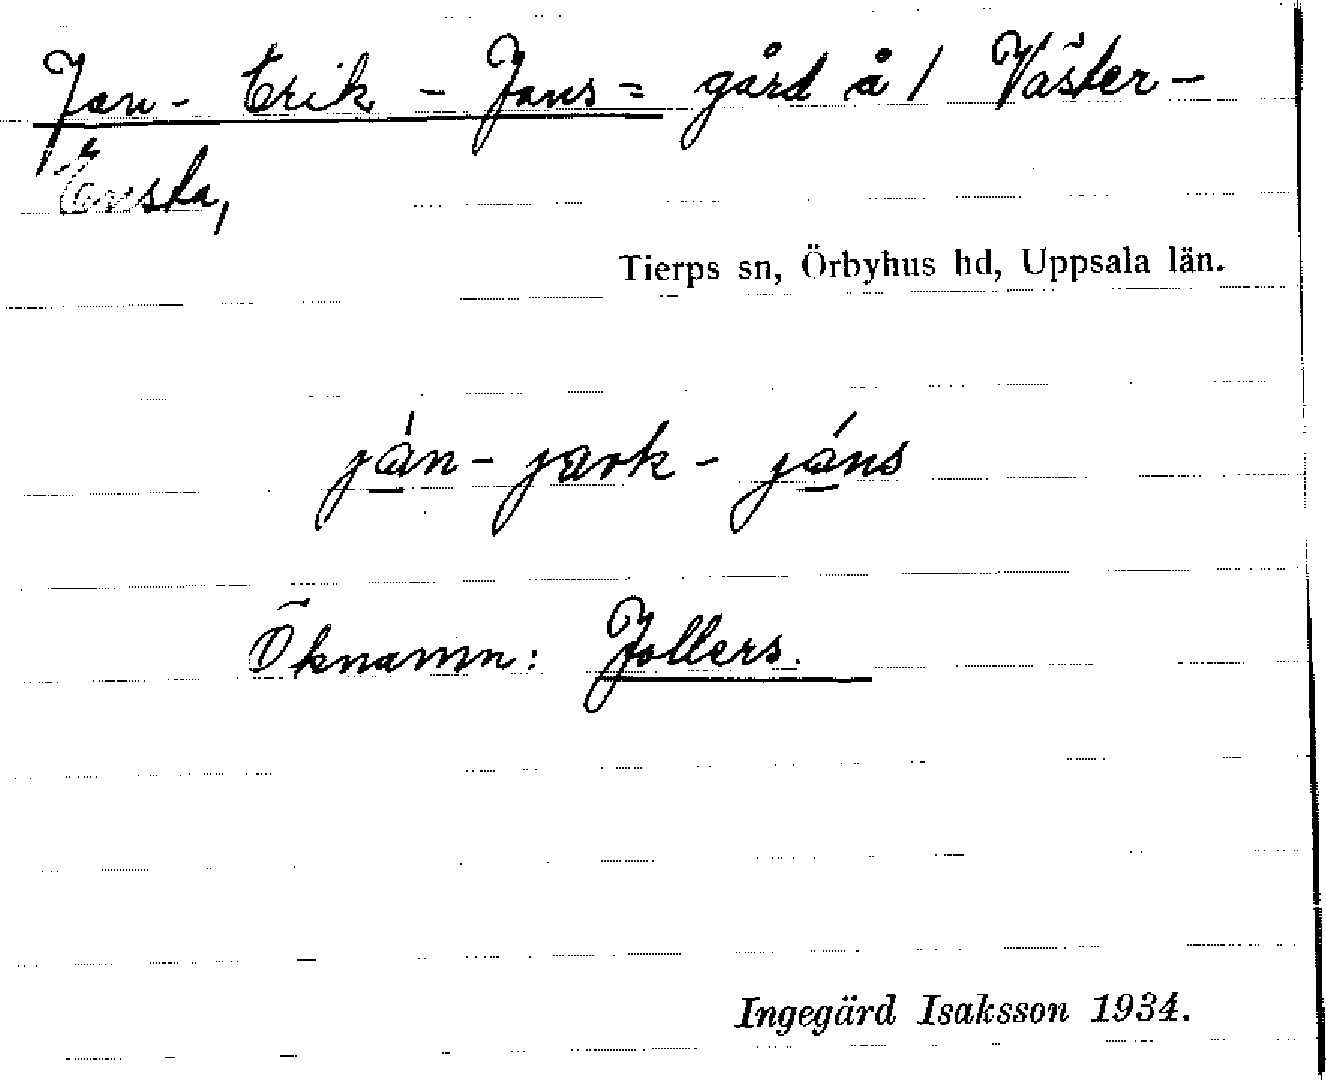 Jan-Erik-Jans= gård å / Väster-
Ensta,
Tierps sn, Örbyhus hd, Uppsala län.
ján-jark-jáns
Öknamn: Jollers.
Ingegärd Isaksson 1934.